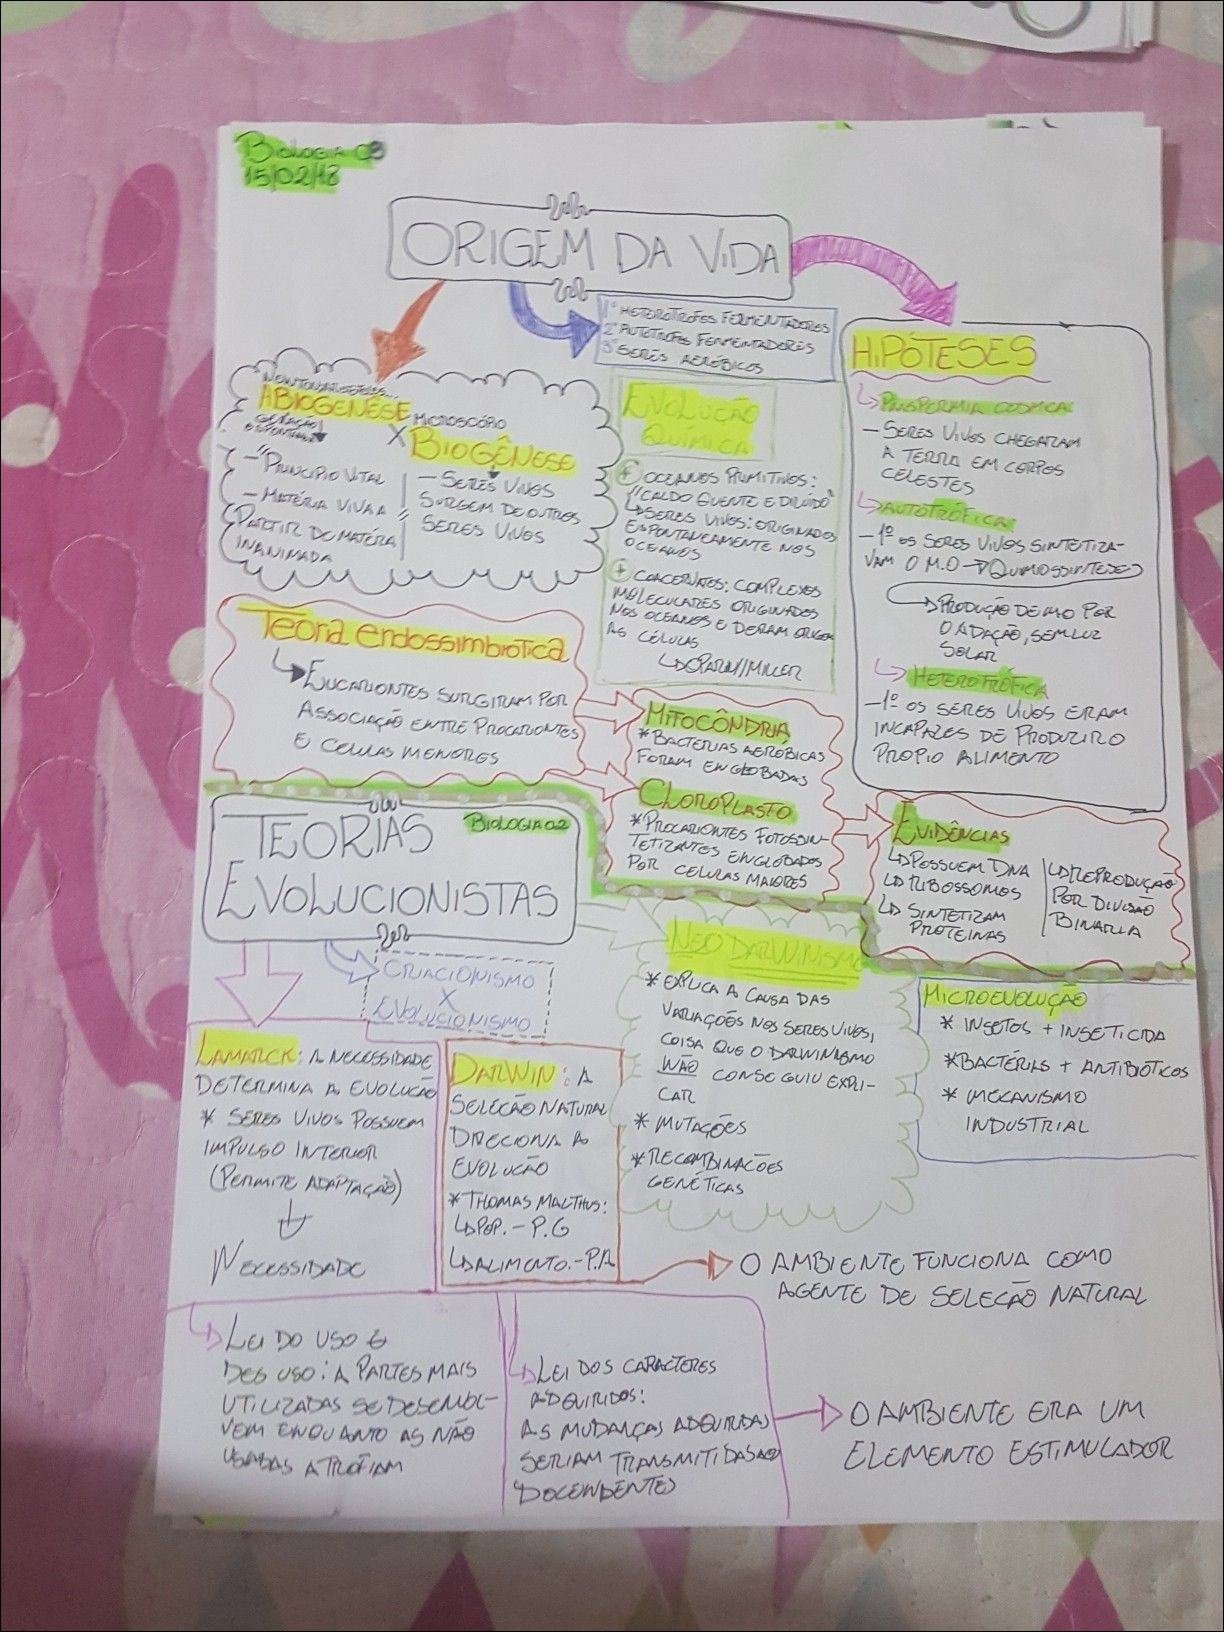 BIOLOGIA 03
15/02/18
ORIGEM DA VIDA
1º HETERÓTROFOS FERMENTADORES
2º AUTÓTROFOS FERMENTADORES
3º SERES AERÓBICOS
ABIOGENÊSE
GERAÇÃO
ESPONTÂNEA
X
- "PRINCIPIO VITAL
- MATÉRIA VIVA A
PARTIR DE MATÉRIA
INANIMADA
MICROSCÓPIO
BIOGÊNESE
- SERES VIVOS
SURGEM DE OUTROS
SERES VIVOS
EVOLUÇÃO
QUÍMICA
+ OCEANOS PRIMITIVOS:
"CALDO QUENTE E DILUÍDO"
SERES VIVOS: ORIGINADOS
ESPONTANEAMENTE NOS
OCEANOS
+ COACERVATES: COMPLEXOS
MOLECULARES ORIGINADOS
NOS OCEANOS E DERAM ORIGEM
AS CÉLULAS
OPARIN//MILLER
HIPÓTESES
PANSPERMIA COSMICA
- SERES VIVOS CHEGARAM
A TERRA EM CORPOS
CELESTES
AUTOTRÓFICA
- 1º OS SERES VIVOS SINTETIZA-
VAM O M.O → QUIMIOSSINTESE
PRODUÇÃO DE MO POR
OXIDAÇÃO, SEM LUZ
SOLAR
HETEROTRÓFICA
- 1º OS SERES VIVOS ERAM
INCAPAZES DE PRODUZIR O
PROPIO ALIMENTO
TEORIA ENDOSSIMBIÓTICA
EUCARIONTES SURGIRAM POR
ASSOCIAÇÃO ENTRE PROCARIONTES
E CELULAS MENORES
MITOCÔNDRIA
* BACTERIAS AERÓBICAS
FORAM ENGLOBADAS
CLOROPLASTO
* PROCARIONTES FOTOSSIN-
TETIZANTES ENGLOBADOS
POR CELULAS MAIORES
EVIDÊNCIAS
POSSUEM DNA
RIBOSSOMOS
SINTETIZAM
PROTEINAS
REPRODUÇÃO
POR DIVISÃO
BINARIA
BIOLOGIA 02
TEORIAS
EVOLUCIONISTAS
CRIACIONISMO
X
EVOLUCIONISMO
LAMARCK: A NECESSIDADE
DETERMINA A EVOLUÇÃO
* SERES VIVOS POSSUEM
IMPULSO INTERIOR
(PERMITE ADAPTAÇÃO)
NECESSIDADE
DARWIN: A
SELEÇÃO NATURAL
DIRECIONA A
EVOLUÇÃO
* THOMAS MALTHUS:
POP. - P.G
ALIMENTO. - P.A
NEO DARWINISMO
* EXPLICA A CAUSA DAS
VARIAÇÕES NOS SERES VIVOS,
COISA QUE O DARWINISMO
NÃO CONSEGUIU EXPLI-
CAR
* MUTAÇÕES
* RECOMBINAÇÕES
GENÉTICAS
MICROEVOLUÇÃO
* INSETOS + INSETICIDA
* BACTÉRIAS + ANTIBIÓTICOS
* MECANISMO
INDUSTRIAL
O AMBIENTE FUNCIONA COMO
AGENTE DE SELEÇÃO NATURAL
LEI DO USO E
DESUSO: A PARTES MAIS
UTILIZADAS SE DESENVOL-
VEM ENQUANTO AS NÃO
USADAS ATROFIAM
LEI DOS CARACTERES
ADQUIRIDOS:
AS MUDANÇAS ADQUIRIDAS
SERIAM TRANSMITIDAS AOS
DOCENDENTES
O AMBIENTE ERA UM
ELEMENTO ESTIMULADOR